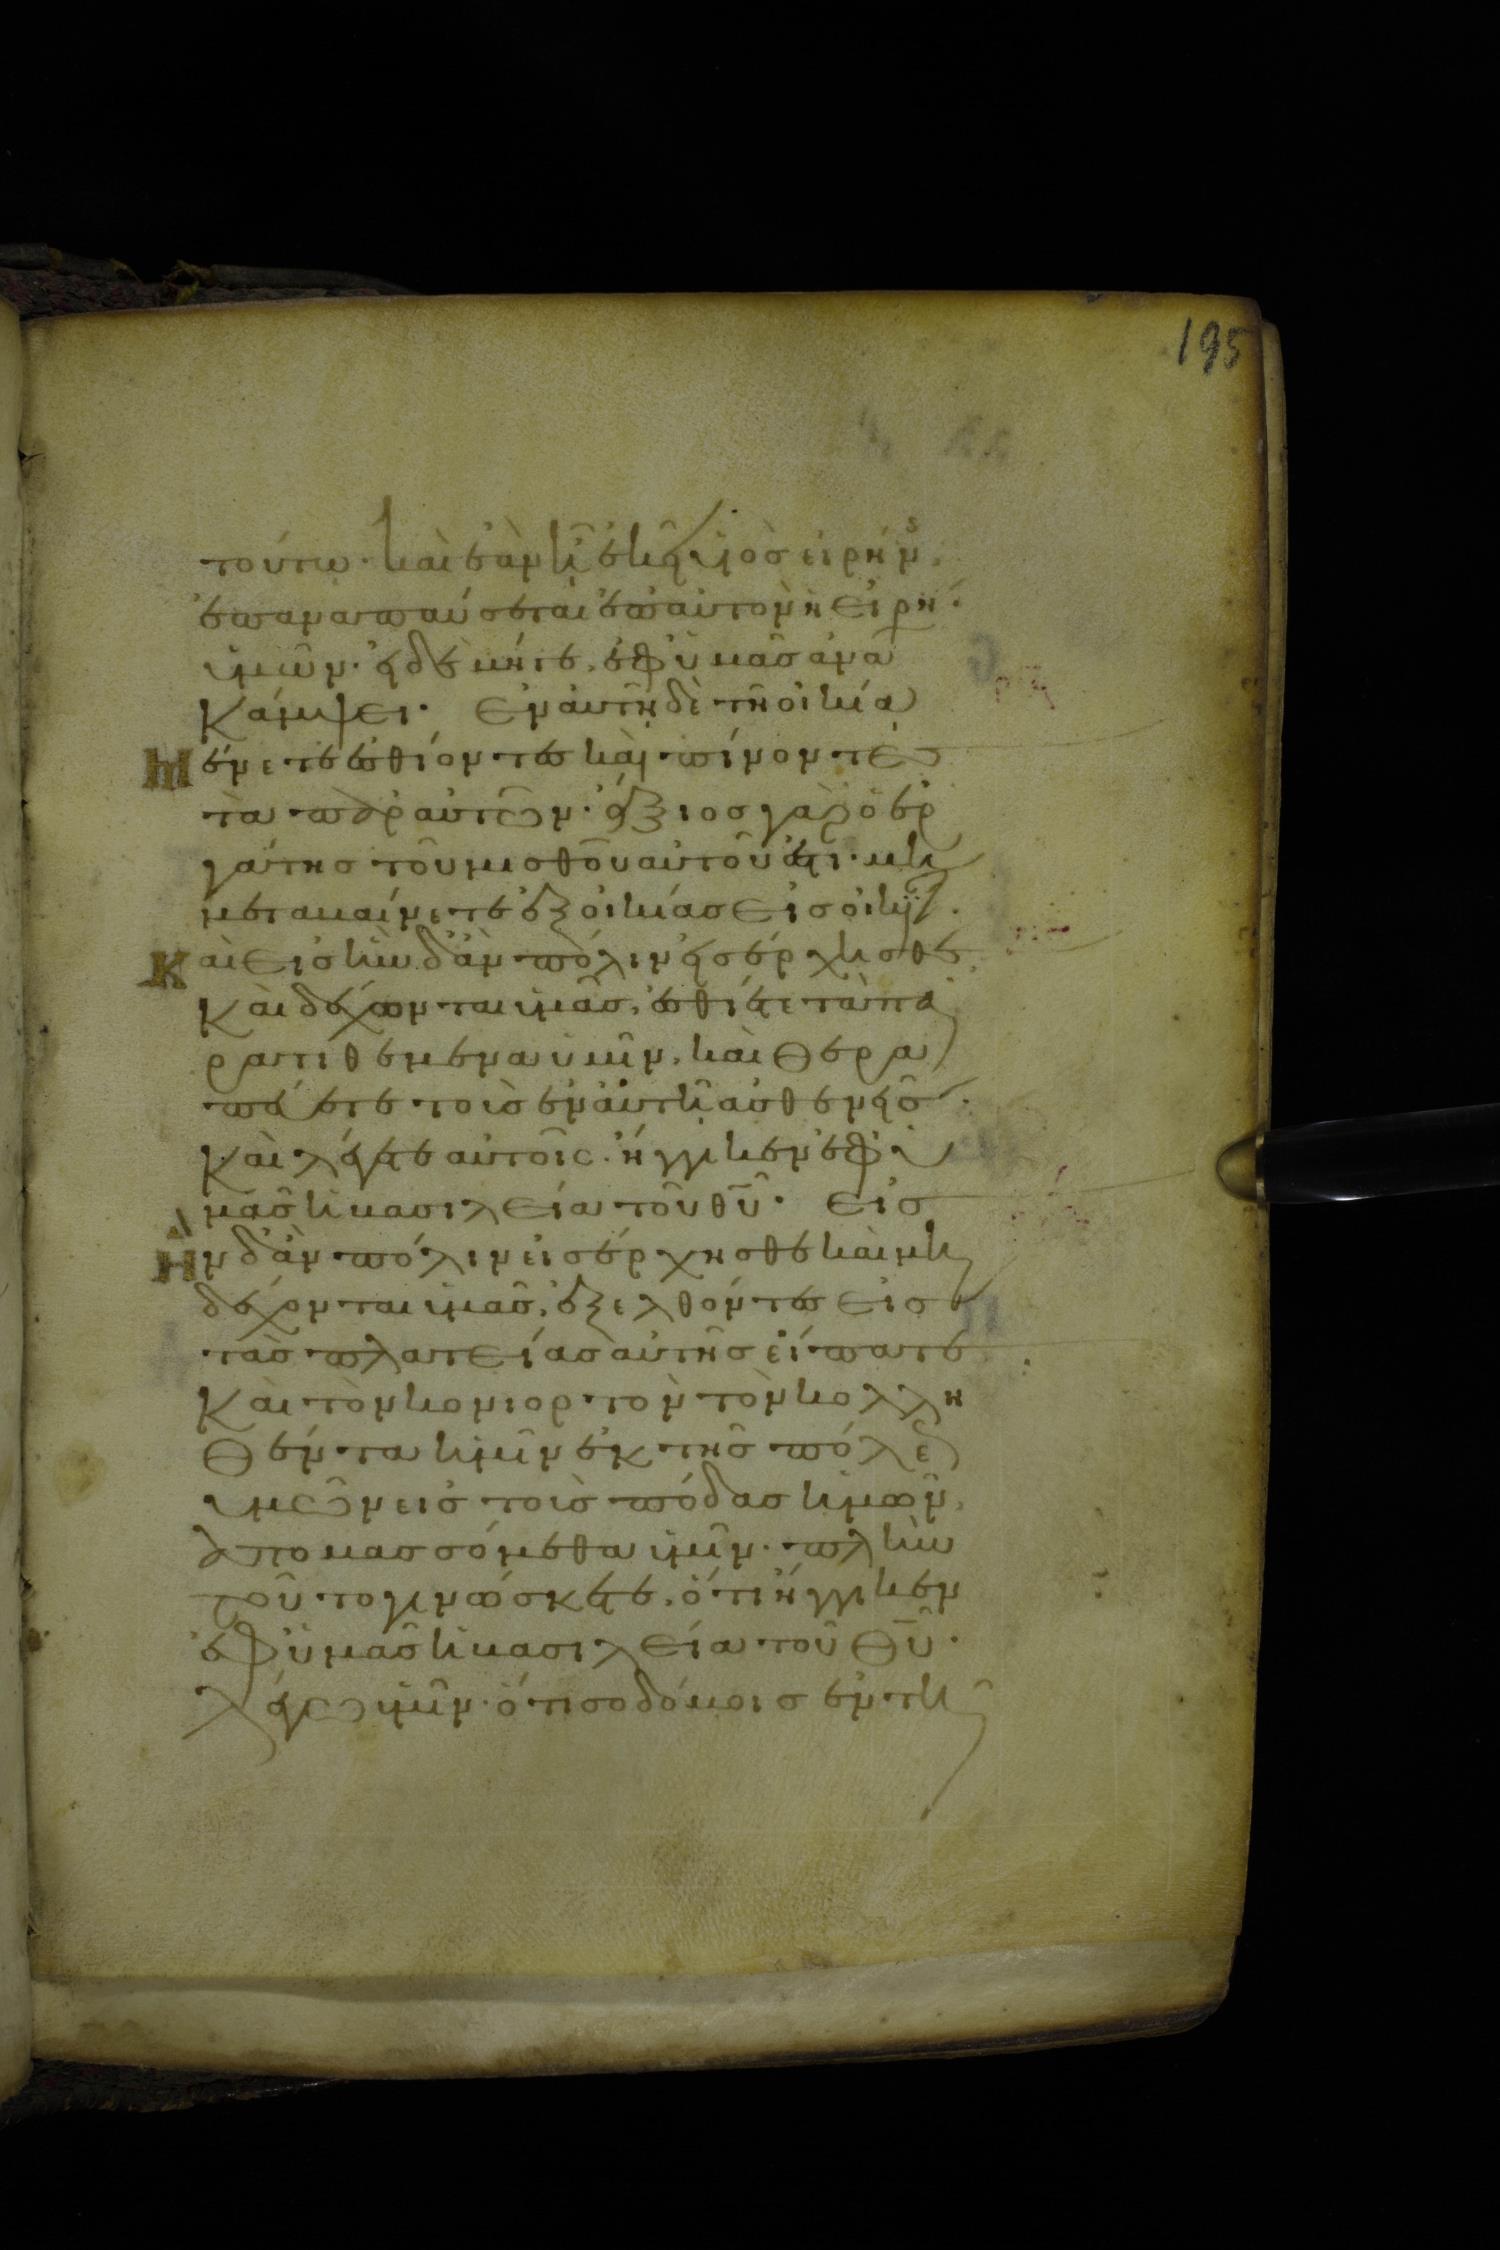 195
τούτω· καὶ ἐὰν ἦ ἐκεῖ υἱὸς εἰρήν
ἐπαναπαύσεται ἐπ αὐτὸν ἡ εἰρή·
ὑμῶν· εἰ δὲ μήγε, ἐφ ὑμᾶς ἀνα
κάμψει· Ἐν αὐτῆ δὲ τῆ οἰκία
Μένετε ἐσθίοντες καὶ πίνοντες
τὰ παρ αὐτῶν· ἄξιος γὰρ ὁ ἐρ
γάτης τοῦ μισθοῦ αὐτοῦ ἐστι· μὴ
μεταβαίνετε ἐξ οἰκίας εἰς οἰκί·
Καὶ εἰς ἣν δ ἂν πόλιν εἰσέρχησθε,
καὶ δέχωνται ὑμᾶς, ἐσθίετε τὰ πα
ρατιθέμενα ὑμῖν, καὶ θερα
πεύετε τοὺς ἐν αὐτῆ ἀσθενεῖς·
καὶ λέγετε αὐτοῖς· ἤγγικεν ἐφ ὑ
μᾶς ἡ βασιλεία τοῦ θυ· Εἰς
Ἣν δ ἂν πόλιν εἰσέρχησθε καὶ μὴ
δέχονται ὑμᾶς, ἐξελθόντες εἰς
τὰς πλατείας αὐτῆς εἴπατε
καὶ τὸν κονιορτὸν τὸν κολλη
θέντα ἡμῖν ἐκ τῆς πόλε
ὑμῶν εἰς τοὺς πόδας ἡμῶν,
ἀπομασσόμεθα ὑμῖν· πλὴν
τοῦτο γινώσκετε, ὅτι ἤγγικεν
ἐφ ὑμᾶς ἡ βασιλεία τοῦ θυ·
λέγω ὑμῖν· ὅτι σοδόμοις ἐν τῆ